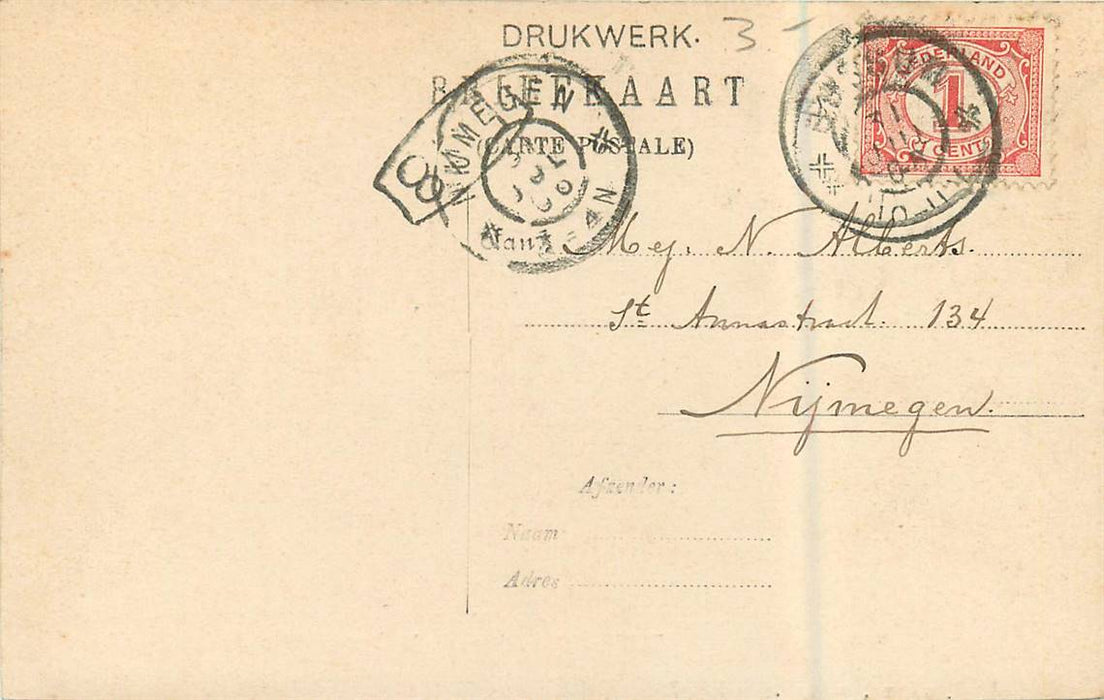 DRUKWERK. 3.-
BRIEFKAART
(CARTE POSTALE)
NEDERLAND
1
CENT
NIJMEGEN
8
Aan
Mej. N. Alberts.
St Annastraat. 134
Nijmegen.
Afzender:
Naam
Adres